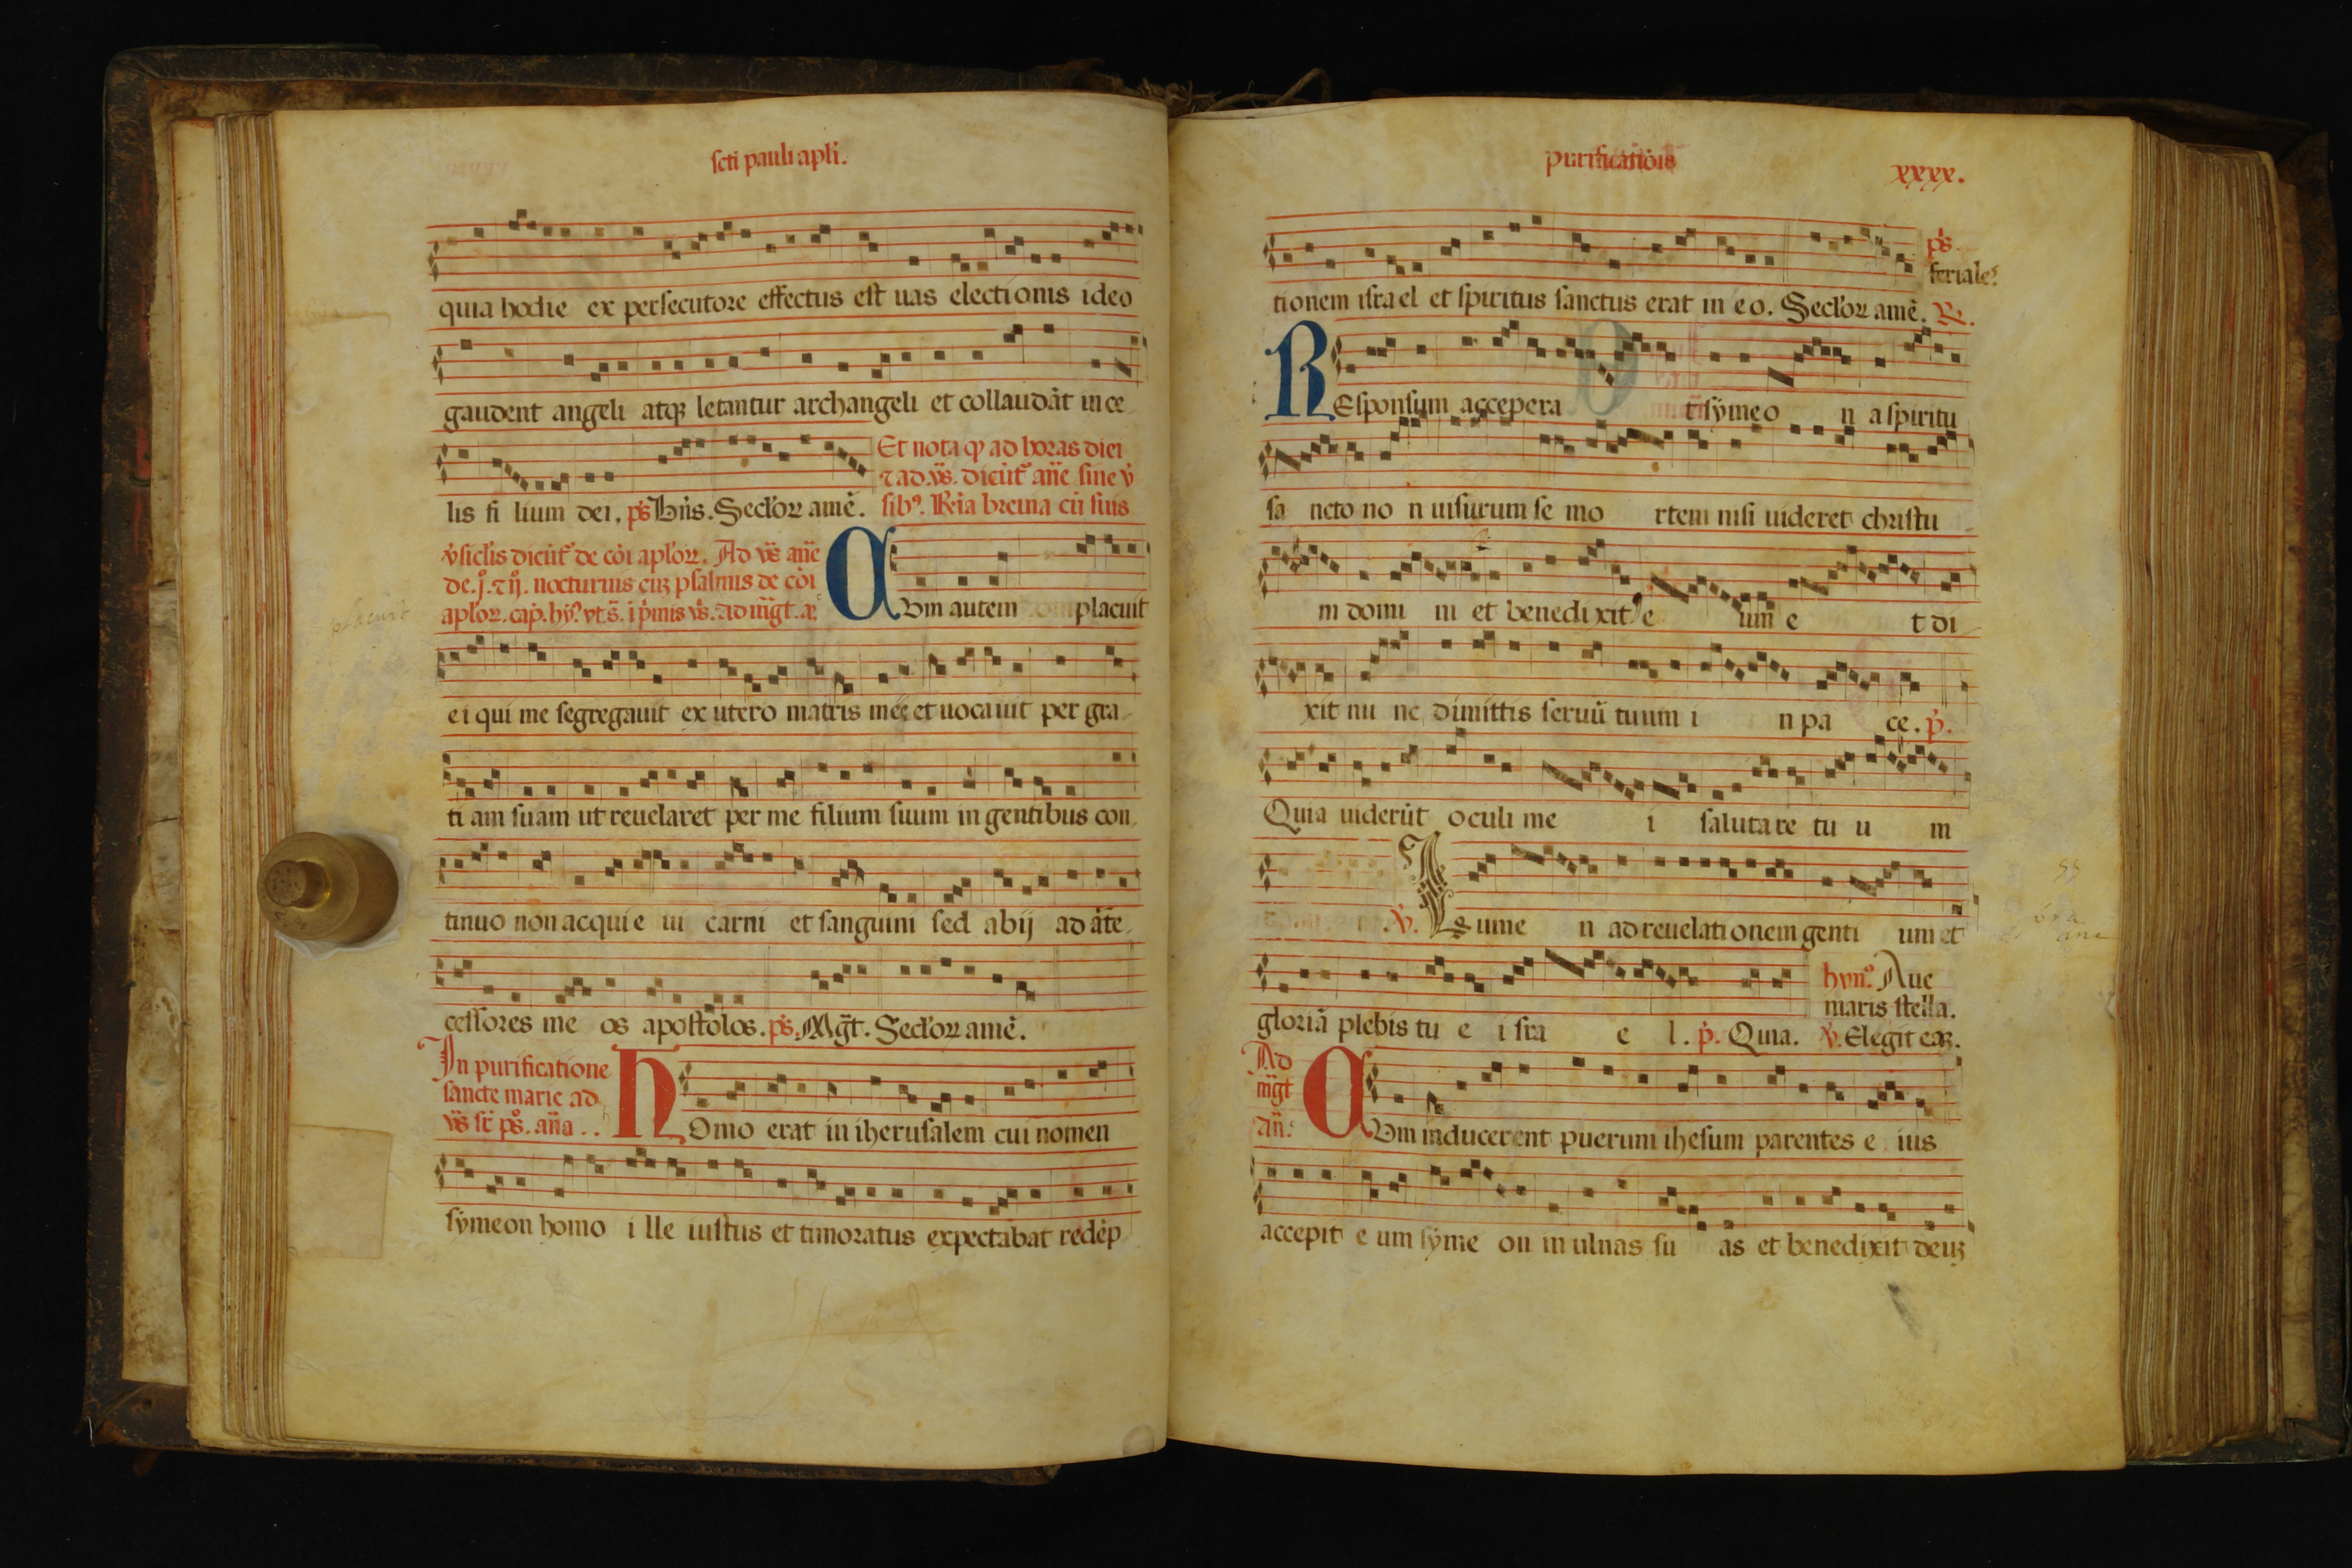 scti pauli apli.
quia hodie ex persecutore effectus est uas electionis ideo
gaudent angeli atqꝫ letantur archangeli et collaudāt in ce
lis fi lium dei. ps̄ Bn̄s. Secl'oꝝ amē.
Et nota ꝙ ad horas diei
⁊ ad vs̄. dicūt' an̄e sine v̓
sib⁹. Rīa breuia cū suis
v̓siclis dicūt' de cōi aploꝝ. Ad vs̄ an̄e
de .j. ⁊ ij. nocturnis cuꝫ psalmis de cōi
aploꝝ. cap. hy⁹. vt s̄. i p̓mis vs̄. ad m̄gt. a⁊
CVm autem placuit
ei qui me segregauit ex utero matris meę et uocauit per gra
ti am suam ut reuelaret per me filium suum in gentibus con
tinuo non acquie ui carni et sanguini sed abij ad āte
cessores me os apostolos. ps̄. M̄gt. Secl'oꝝ amē.
In purificatione
sancte marie ad
vs̄ sr̄ ps̄. an̄a . .
HOmo erat in iherusalem cui nomen
symeon homo i lle iustus et timoratus expectabat redēp
purificatiōis
xxxx.
tionem isra el et spiritus sanctus erat in eo. Secl'oꝝ amē. ℟.
ps̄
feriales
REsponsum accepera t symeo n a spiritu
sa ncto no n uisurum se mo rtem nisi uideret christu
m domi ni et benedixit e um e t di
xit nu nc dimittis seruū tuum i n pa ce. p̓.
Quia uiderūt oculi me i salutare tu u m
℣. Lume n ad reuelati onem genti um et
gloriā plebis tu e i sra e l. p̓. Quia.
hyn⁹. Aue
maris stella.
℣. Elegit eaꝫ.
Ad
m̄gt
an̄.
CVm inducerent puerum ihesum parentes e ius
accepit e um syme on in ulnas su as et benedixit deuꝫ